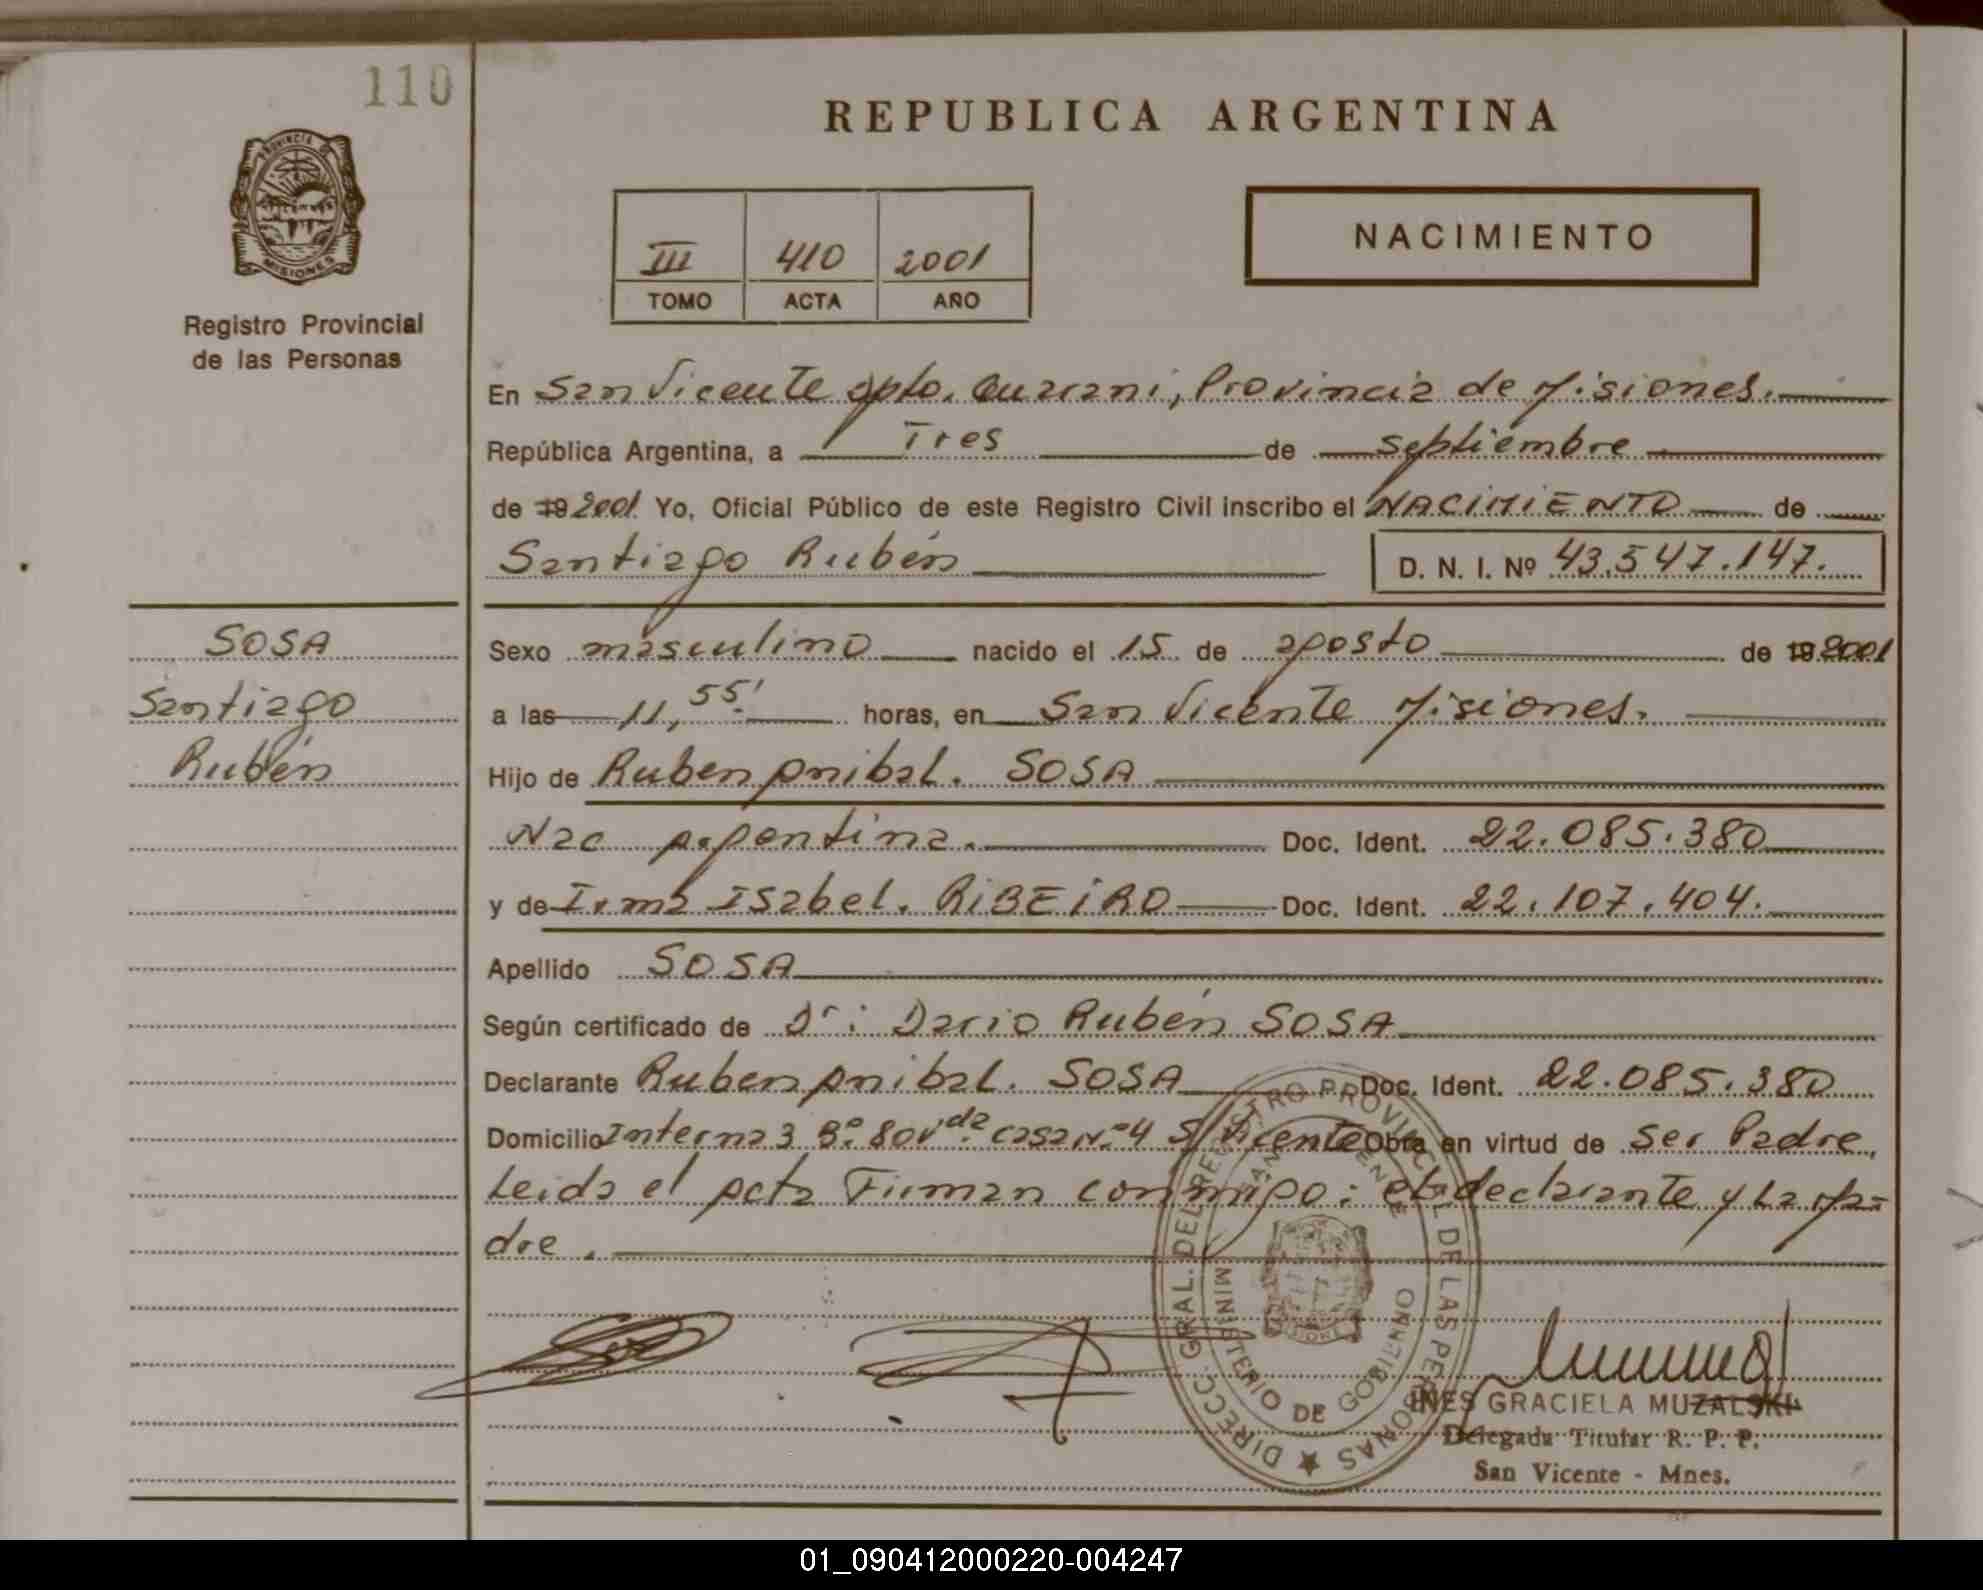 110
REPUBLICA ARGENTINA
PROVINCIA DE
MISIONES
Registro Provincial
de las Personas
III 410 2001
TOMO ACTA AÑO
NACIMIENTO
En San Vicente Dpto. Guarani, Provincia de Misiones.
República Argentina, a Tres de septiembre
de 19 2001 Yo, Oficial Público de este Registro Civil inscribo el NACIMIENTO de
Santiago Rubén D. N. I. Nº 43.547.147.
SOSA
Santiago
Rubén
Sexo masculino nacido el 15 de agosto de 19 2001
a las 11,55' horas, en San Vicente Misiones.
Hijo de Ruben Anibal. SOSA
Nac Argentina. Doc. Ident. 22.085.380
y de Irma Isabel. RIBEIRO Doc. Ident. 22.107.404.
Apellido SOSA
Según certificado de Dr: Dario Rubén SOSA
Declarante Ruben Anibal. SOSA Doc. Ident. 22.085.380
Domicilio Interna 3 Bº 80 Vdª casa Nº 4 S/Vicente Obra en virtud de ser Padre,
Leida el Acta Firman conmigo: el declarante y La Ma-
dre.
DIRECC. GRAL. DEL REGISTRO PROVINCIAL DE LAS PERSONAS
SAN VICENTE
MINISTERIO DE GOBIERNO
INES GRACIELA MUZALSKI
Delegada Titular R. P. P.
San Vicente - Mnes.
01_090412000220-004247